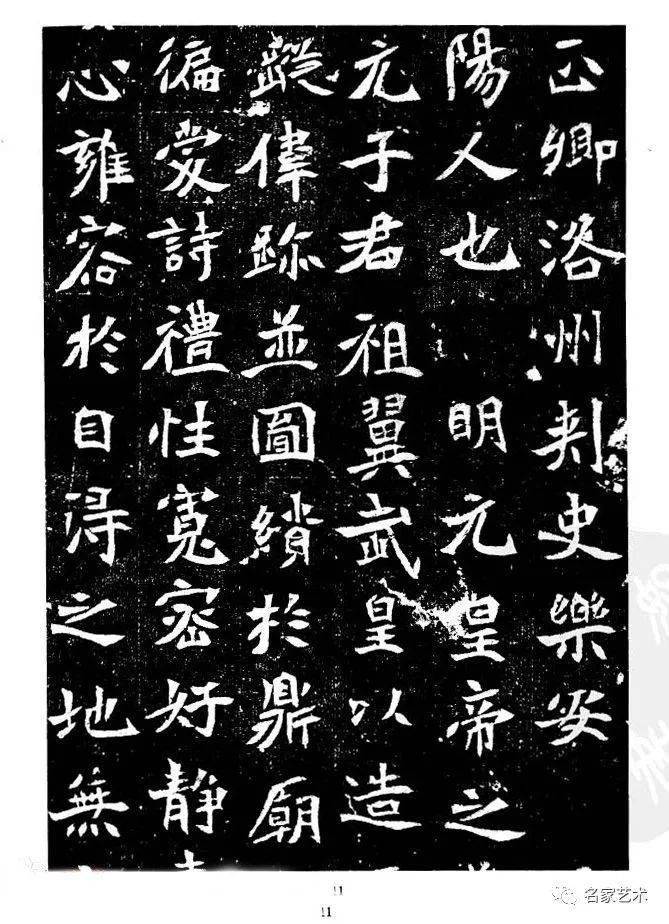 正卿洛州刾史樂安
陽人也 明元皇帝之
元子君 祖翼武皇以造
蹤偉跡並圖繢於鼎廟
徧愛詩禮性寬密好靜
心雍容於自得之地無
11
11
名家艺术